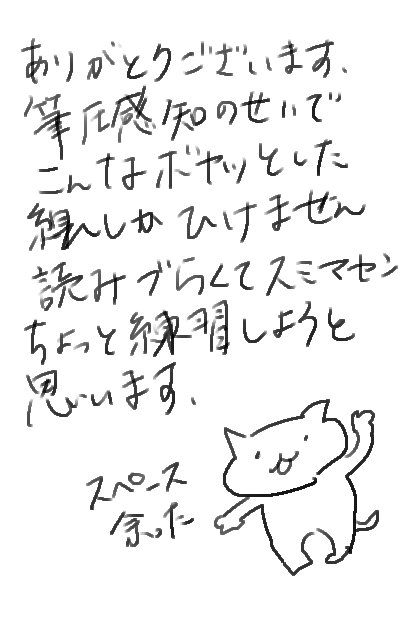 ありがとうございます、
筆圧感知のせいで
こんなボヤッとした
線しかひけません
読みづらくてスミマセン
ちょっと練習しようと
思います、
スペース
余った